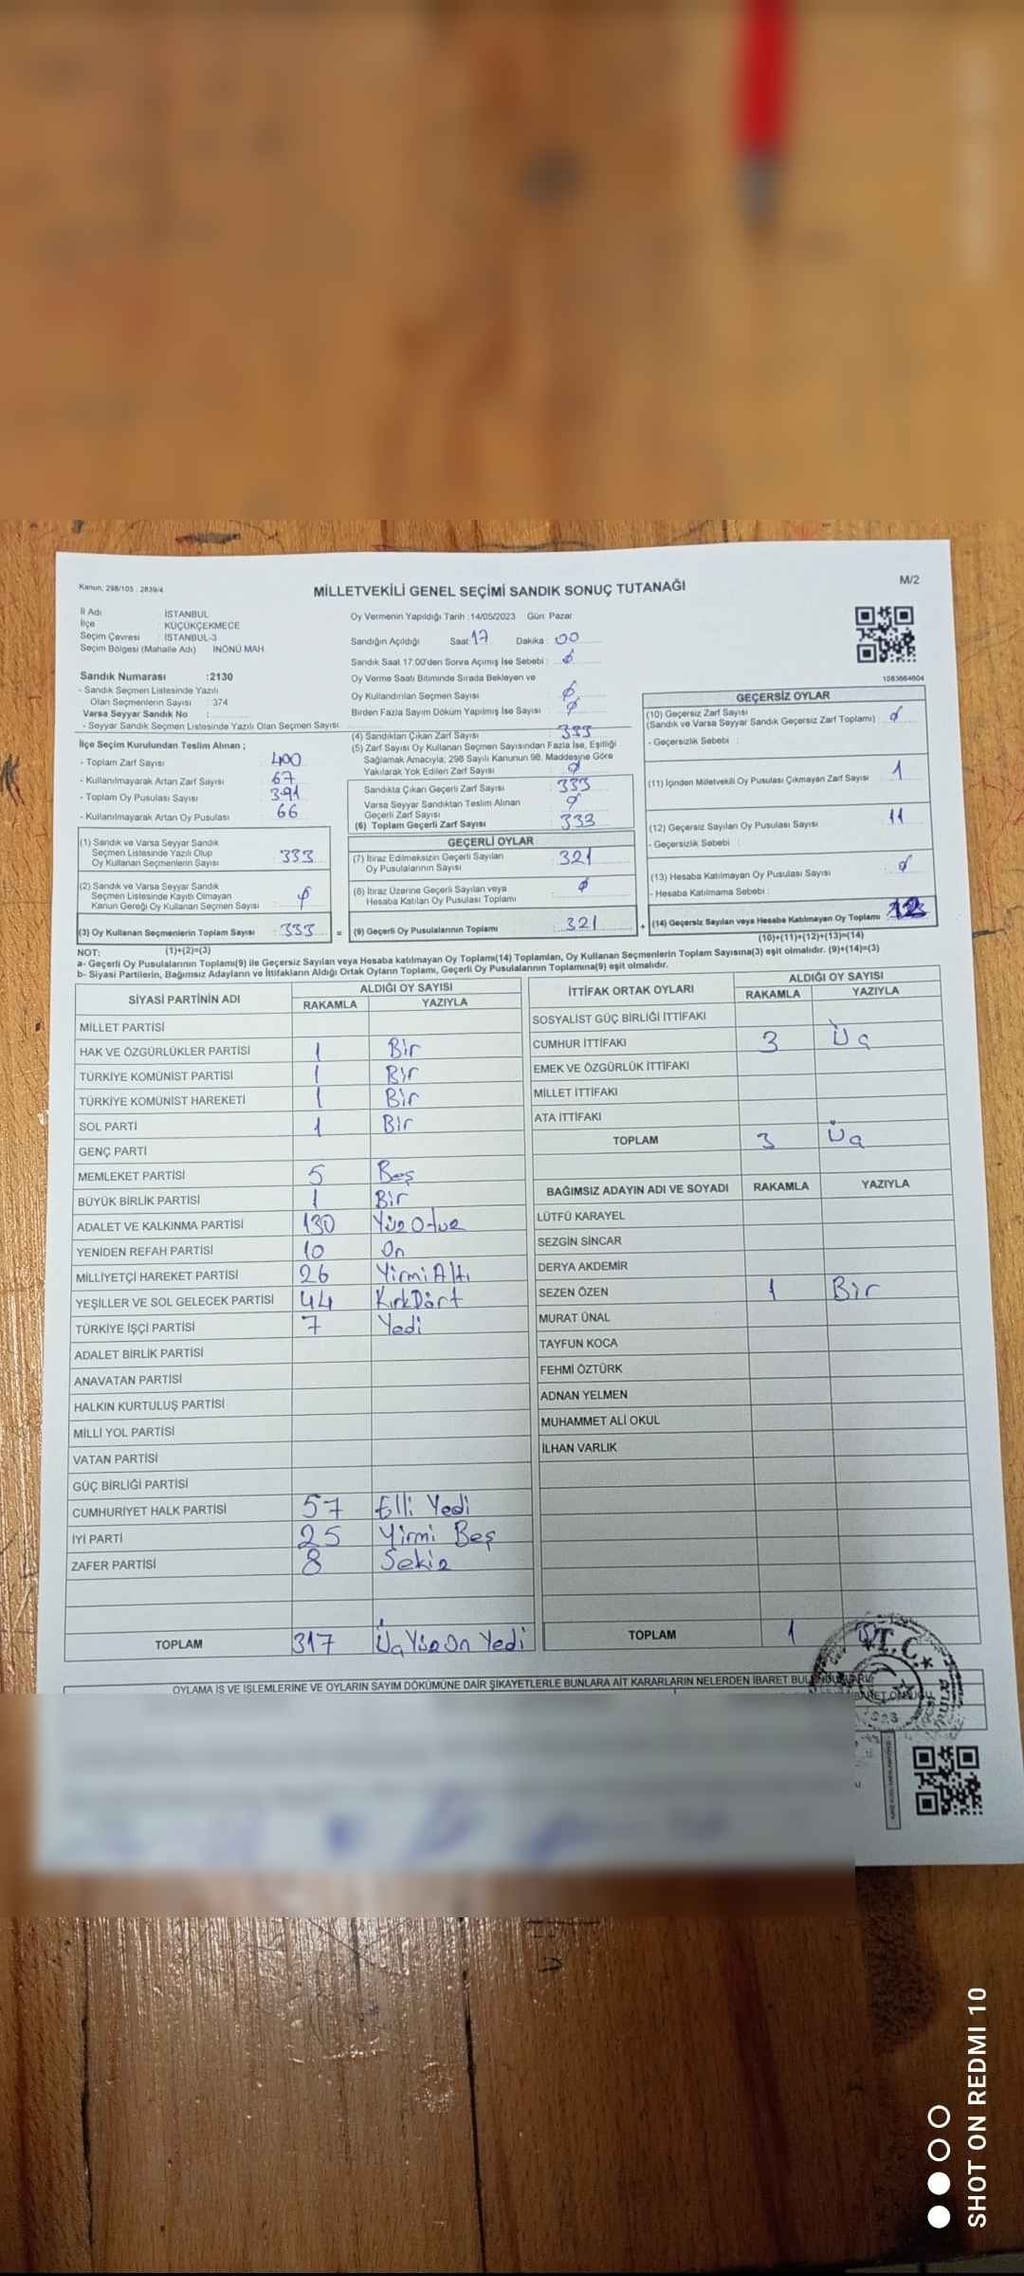 Kanun: 298/105 - 2839/4
M/2
MİLLETVEKİLİ GENEL SEÇİMİ SANDIK SONUÇ TUTANAĞI
İl Adı : İSTANBUL
İlçe : KÜÇÜKÇEKMECE
Seçim Çevresi : İSTANBUL-3
Seçim Bölgesi (Mahalle Adı) İNÖNÜ MAH.
Oy Vermenin Yapıldığı Tarih :14/05/2023 Gün: Pazar
Sandığın Açıldığı Saat: 17 Dakika: 00
Sandık Saat 17:00'den Sonra Açılmış İse Sebebi : ø
Oy Verme Saati Bitiminde Sırada Bekleyen ve
Oy Kullandırılan Seçmen Sayısı ø
Birden Fazla Sayım Döküm Yapılmış İse Sayısı ø
1083664604
Sandık Numarası :2130
- Sandık Seçmen Listesinde Yazılı
Olan Seçmenlerin Sayısı 374
Varsa Seyyar Sandık No :
- Seyyar Sandık Seçmen Listesinde Yazılı Olan Seçmen Sayısı
İlçe Seçim Kurulundan Teslim Alınan ;
- Toplam Zarf Sayısı 400
- Kullanılmayarak Artan Zarf Sayısı 67
- Toplam Oy Pusulası Sayısı 391
- Kullanılmayarak Artan Oy Pusulası 66
(1) Sandık ve Varsa Seyyar Sandık
Seçmen Listesinde Yazılı Olup
Oy Kullanan Seçmenlerin Sayısı : 333
(2) Sandık ve Varsa Seyyar Sandık
Seçmen Listesinde Kayıtlı Olmayan
Kanun Gereği Oy Kullanan Seçmen Sayısı : ø
(3) Oy Kullanan Seçmenlerin Toplam Sayısı : 333 =
(4) Sandıktan Çıkan Zarf Sayısı : 333
(5) Zarf Sayısı Oy Kullanan Seçmen Sayısından Fazla İse, Eşitliği
Sağlamak Amacıyla; 298 Sayılı Kanunun 98. Maddesine Göre
Yakılarak Yok Edilen Zarf Sayısı : ø
Sandıkta Çıkan Geçerli Zarf Sayısı 333
Varsa Seyyar Sandıktan Teslim Alınan
Geçerli Zarf Sayısı ø
(6) Toplam Geçerli Zarf Sayısı 333
GEÇERLİ OYLAR
(7) İtiraz Edilmeksizin Geçerli Sayılan
Oy Pusulalarının Sayısı : 321
(8) İtiraz Üzerine Geçerli Sayılan veya
Hesaba Katılan Oy Pusulası Toplamı : ø
(9) Geçerli Oy Pusulalarının Toplamı : 321 +
GEÇERSİZ OYLAR
(10) Geçersiz Zarf Sayısı
(Sandık ve Varsa Seyyar Sandık Geçersiz Zarf Toplamı) : ø
- Geçersizlik Sebebi :
(11) İçinden Milletvekili Oy Pusulası Çıkmayan Zarf Sayısı : 1
(12) Geçersiz Sayılan Oy Pusulası Sayısı : 11
- Geçersizlik Sebebi :
(13) Hesaba Katılmayan Oy Pusulası Sayısı : ø
- Hesaba Katılmama Sebebi :
(14) Geçersiz Sayılan veya Hesaba Katılmayan Oy Toplamı : 12
NOT: (1)+(2)=(3)
(10)+(11)+(12)+(13)=(14)
a- Geçerli Oy Pusulalarının Toplamı(9) ile Geçersiz Sayılan veya Hesaba katılmayan Oy Toplamı(14) Toplamları, Oy Kullanan Seçmenlerin Toplam Sayısına(3) eşit olmalıdır. (9)+(14)=(3)
b- Siyasi Partilerin, Bağımsız Adayların ve İttifakların Aldığı Ortak Oyların Toplamı, Geçerli Oy Pusulalarının Toplamına(9) eşit olmalıdır.
SİYASİ PARTİNİN ADI ALDIĞI OY SAYISI
RAKAMLA YAZIYLA
MİLLET PARTİSİ
HAK VE ÖZGÜRLÜKLER PARTİSİ 1 Bir
TÜRKİYE KOMÜNİST PARTİSİ 1 Bir
TÜRKİYE KOMÜNİST HAREKETİ 1 Bir
SOL PARTİ 1 Bir
GENÇ PARTİ
MEMLEKET PARTİSİ 5 Beş
BÜYÜK BİRLİK PARTİSİ 1 Bir
ADALET VE KALKINMA PARTİSİ 130 Yüz Otuz
YENİDEN REFAH PARTİSİ 10 On
MİLLİYETÇİ HAREKET PARTİSİ 26 Yirmi Altı
YEŞİLLER VE SOL GELECEK PARTİSİ 44 Kırk Dört
TÜRKİYE İŞÇİ PARTİSİ 7 Yedi
ADALET BİRLİK PARTİSİ
ANAVATAN PARTİSİ
HALKIN KURTULUŞ PARTİSİ
MİLLİ YOL PARTİSİ
VATAN PARTİSİ
GÜÇ BİRLİĞİ PARTİSİ
CUMHURİYET HALK PARTİSİ 57 Elli Yedi
İYİ PARTİ 25 Yirmi Beş
ZAFER PARTİSİ 8 Sekiz
TOPLAM 317 Üç Yüz On Yedi
İTTİFAK ORTAK OYLARI ALDIĞI OY SAYISI
RAKAMLA YAZIYLA
SOSYALİST GÜÇ BİRLİĞİ İTTİFAKI
CUMHUR İTTİFAKI 3 Üç
EMEK VE ÖZGÜRLÜK İTTİFAKI
MİLLET İTTİFAKI
ATA İTTİFAKI
TOPLAM 3 Üç
BAĞIMSIZ ADAYIN ADI VE SOYADI RAKAMLA YAZIYLA
LÜTFÜ KARAYEL
SEZGİN SİNCAR
DERYA AKDEMİR
SEZEN ÖZEN 1 Bir
MURAT ÜNAL
TAYFUN KOCA
FEHMİ ÖZTÜRK
ADNAN YELMEN
MUHAMMET ALİ OKUL
İLHAN VARLIK
TOPLAM 1
T.C.
OYLAMA İŞ VE İŞLEMLERİNE VE OYLARIN SAYIM DÖKÜMÜNE DAİR ŞİKAYETLERLE BUNLARA AİT KARARLARIN NELERDEN İBARET
SHOT ON REDMI 10